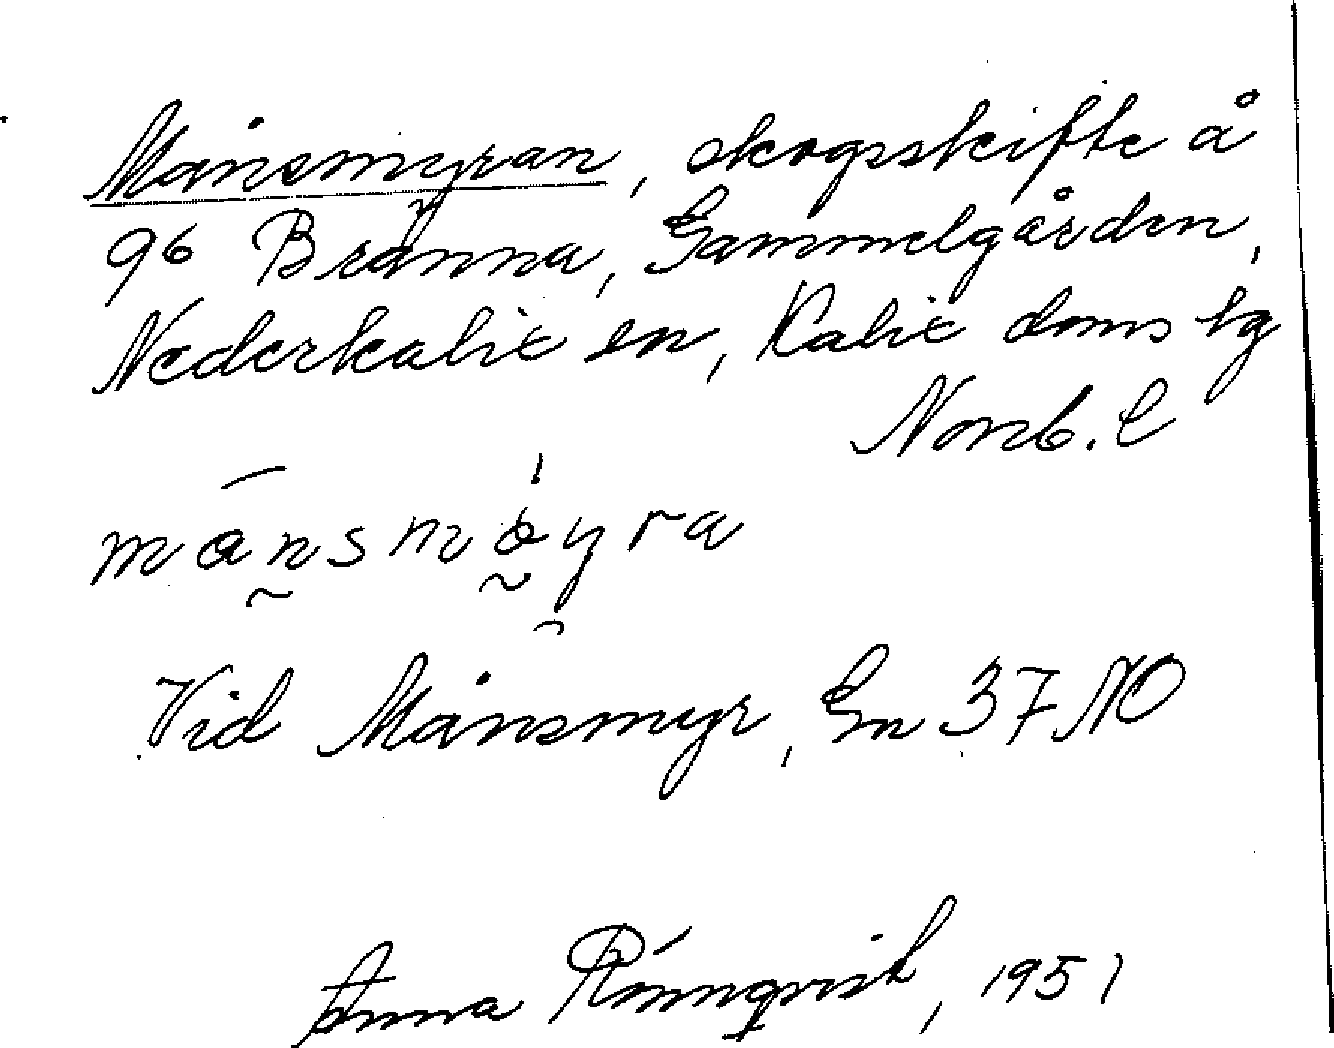 Månsmyran, skogsskifte å
96 Bränna, Gammelgården,
Nederkalix sn, Kalix doms tg
Norrb. l
månsmöyra
Vid Månsmyr, Gn 37 NO
Anna Rönnqvist, 1951